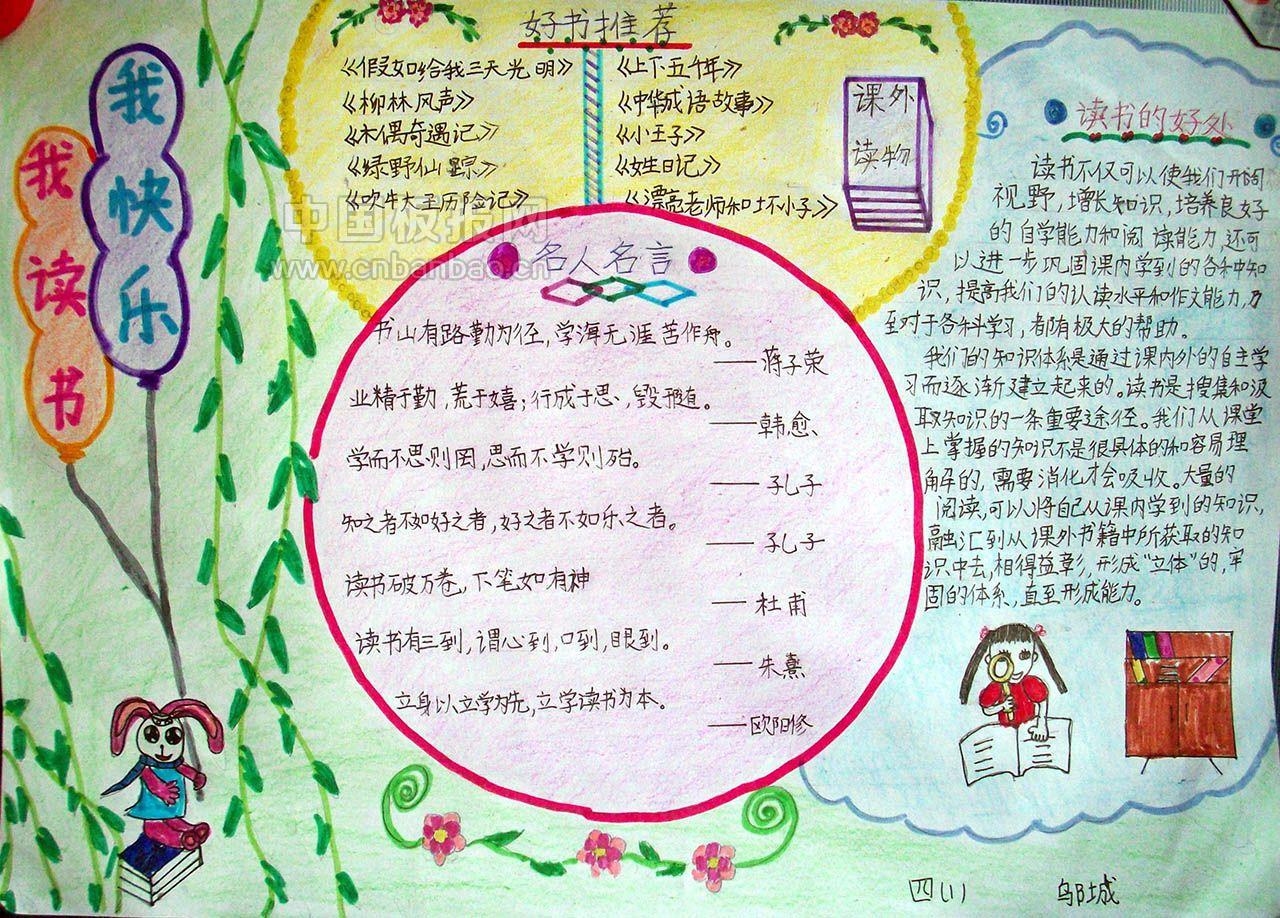 我读书
我快乐
好书推荐
《假如给我三天光明》
《柳林风声》
《木偶奇遇记》
《绿野仙踪》
《吹牛大王历险记》
《上下五千年》
《中华成语故事》
《小王子》
《女生日记》
《漂亮老师和坏小子》
课外
读物
中国板报网
www.cnbanbao.cn
名人名言
书山有路勤为径，学海无涯苦作舟。
——蒋子荣
业精于勤，荒于嬉；行成于思，毁于随。
——韩愈、
学而不思则罔，思而不学则殆。
——孔子
知之者不如好之者，好之者不如乐之者。
——孔子
读书破万卷，下笔如有神
——杜甫
读书有三到，谓心到，口到，眼到。
——朱熹
立身以立学为先，立学读书为本。
——欧阳修
读书的好处
读书不仅可以使我们开阔
视野，增长知识，培养良好
的自学能力和阅读能力，还可
以进一步巩固课内学到的各种知
识，提高我们的认读水平和作文能力，乃
至对于各科学习，都有极大的帮助。
我们的知识体系是通过课内外的自主学
习而逐渐建立起来的。读书是搜集和汲
取知识的一条重要途径。我们从课堂
上掌握的知识不是很具体的和容易理
解的，需要消化才会吸收。大量的
阅读，可以将自己从课内学到的知识，
融汇到从课外书籍中所获取的知
识中去，相得益彰，形成“立体”的，牢
固的体系，直至形成能力。
四(1) 邬城